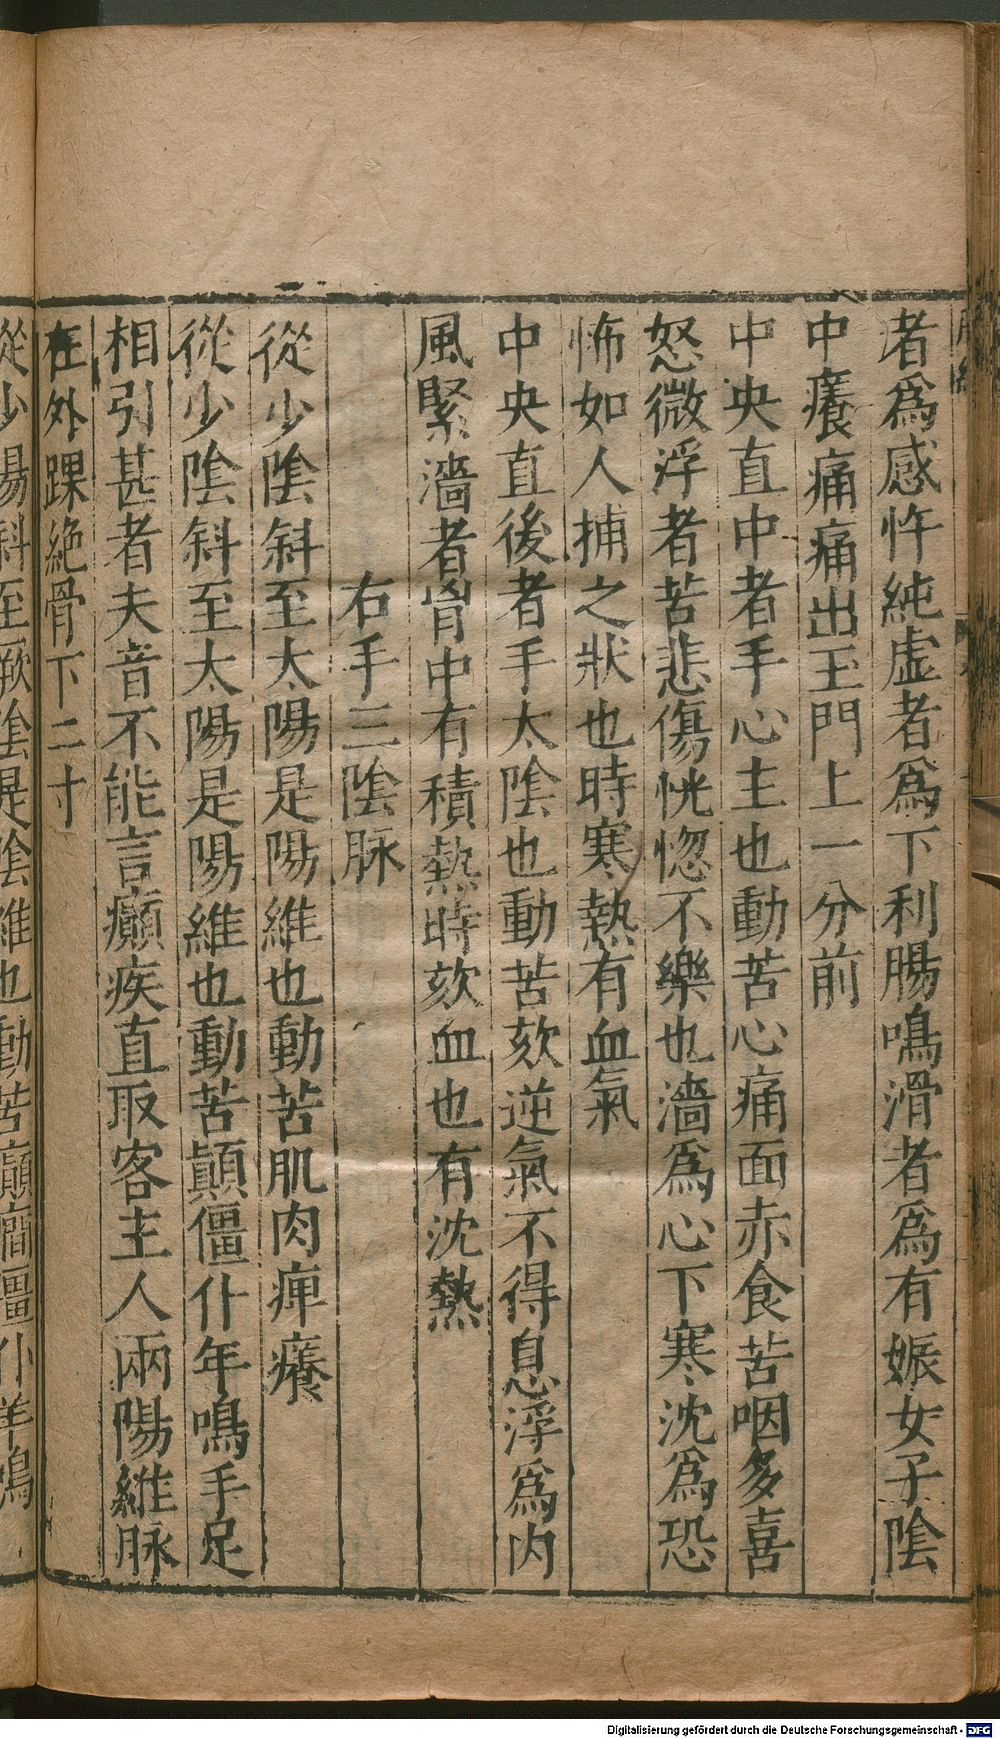 者爲感忤純虛者爲下利腸鳴滑者爲有娠女子陰
中癢痛痛出玉門上一分前
中央直中者手心主也動苦心痛面赤食苦咽多喜
怒微浮者苦悲傷恍惚不樂也濇爲心下寒沈爲恐
怖如人捕之狀也時寒熱有血氣
中央直後者手太陰也動苦欬逆氣不得息浮爲內
風緊濇者胷中有積熱時欬血也有沈熱
右手三陰脉
從少陰斜至太陽是陽維也動苦肌肉痺癢
從少陰斜至太陽是陽維也動苦顛僵仆年鳴手足
相引甚者失音不能言癲疾直取客主人兩陽維脉
在外踝絶骨下二寸
從少陽斜至厥陰是陰維也動苦癲癎僵仆羊鳴
Digitalisierung gefördert durch die Deutsche Forschungsgemeinschaft - DFG